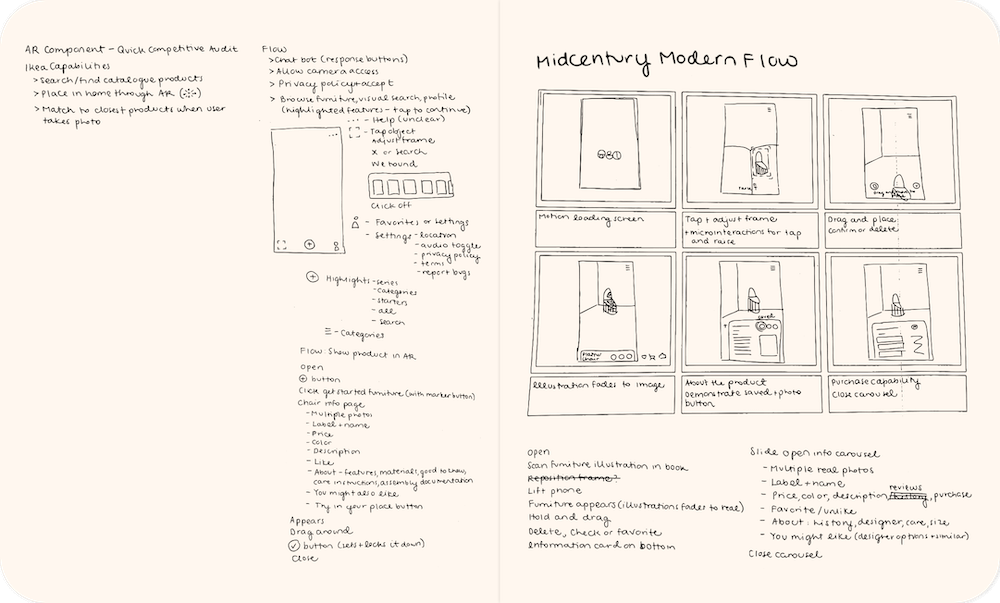 AR Component - Quick Competitive Audit
Ikea Capabilities
> Search/find catalogue products
> Place in home through AR
> Match to closest products when user
takes photo
Flow
> Chat bot (response buttons)
> Allow camera access
> Privacy policy + accept
> Browse furniture, visual search, profile
(highlighted features - tap to continue)
... - Help (unclear)
- Tap object
Adjust frame
X or search
We found
Click off
- Favorites or settings
- Settings - location
- audio toggle
- privacy policy
- terms
- report bugs
Highlights - series
- categories
- starters
- all
- search
- Categories
Flow: Show product in AR
Open
+ button
Click get started furniture (with marker button)
Chair info page
- Multiple photos
- Label + name
- Price
- Color
- Description
- Like
- About - features, materials, good to know,
care instructions, assembly documentation
- You might also like
- Try in your place button
Appears
Drag around
✓ button (sets + locks it down)
Close
Midcentury Modern Flow
Motion loading screen
Tap + adjust frame
+ microinteractions for tap
and raise
Drag and place
confirm or delete
Illustration fades to image
About the product
Demonstrate saved + photo
button
Purchase capability
Close carousel
Open
Scan furniture illustration in book
Reposition frame?
Lift phone
Furniture appears (illustrations fades to real)
Hold and drag
Delete, check or favorite
Information card on bottom
Slide open info carousel
- Multiple real photos
- Label + name
reviews
- Price, color, description, history, purchase
- Favorite/unlike
- About: history, designer, care, size
- You might like (designer options + similar)
Close carousel